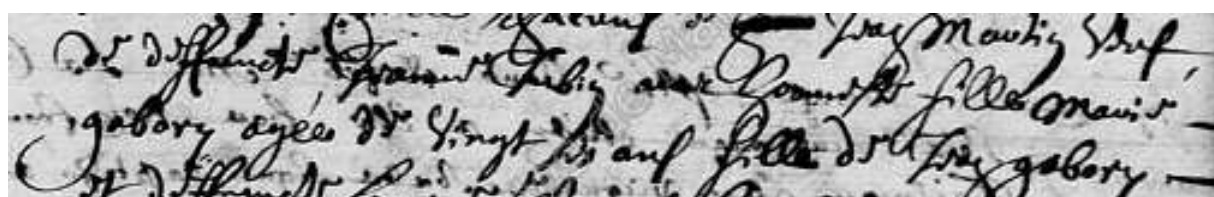 Jean Martin veuf
de deffuncte Jeanne Aubin avec honneste fille Marie
gabory agée de vingt six ans fille de Jean gabory
et deffuncte